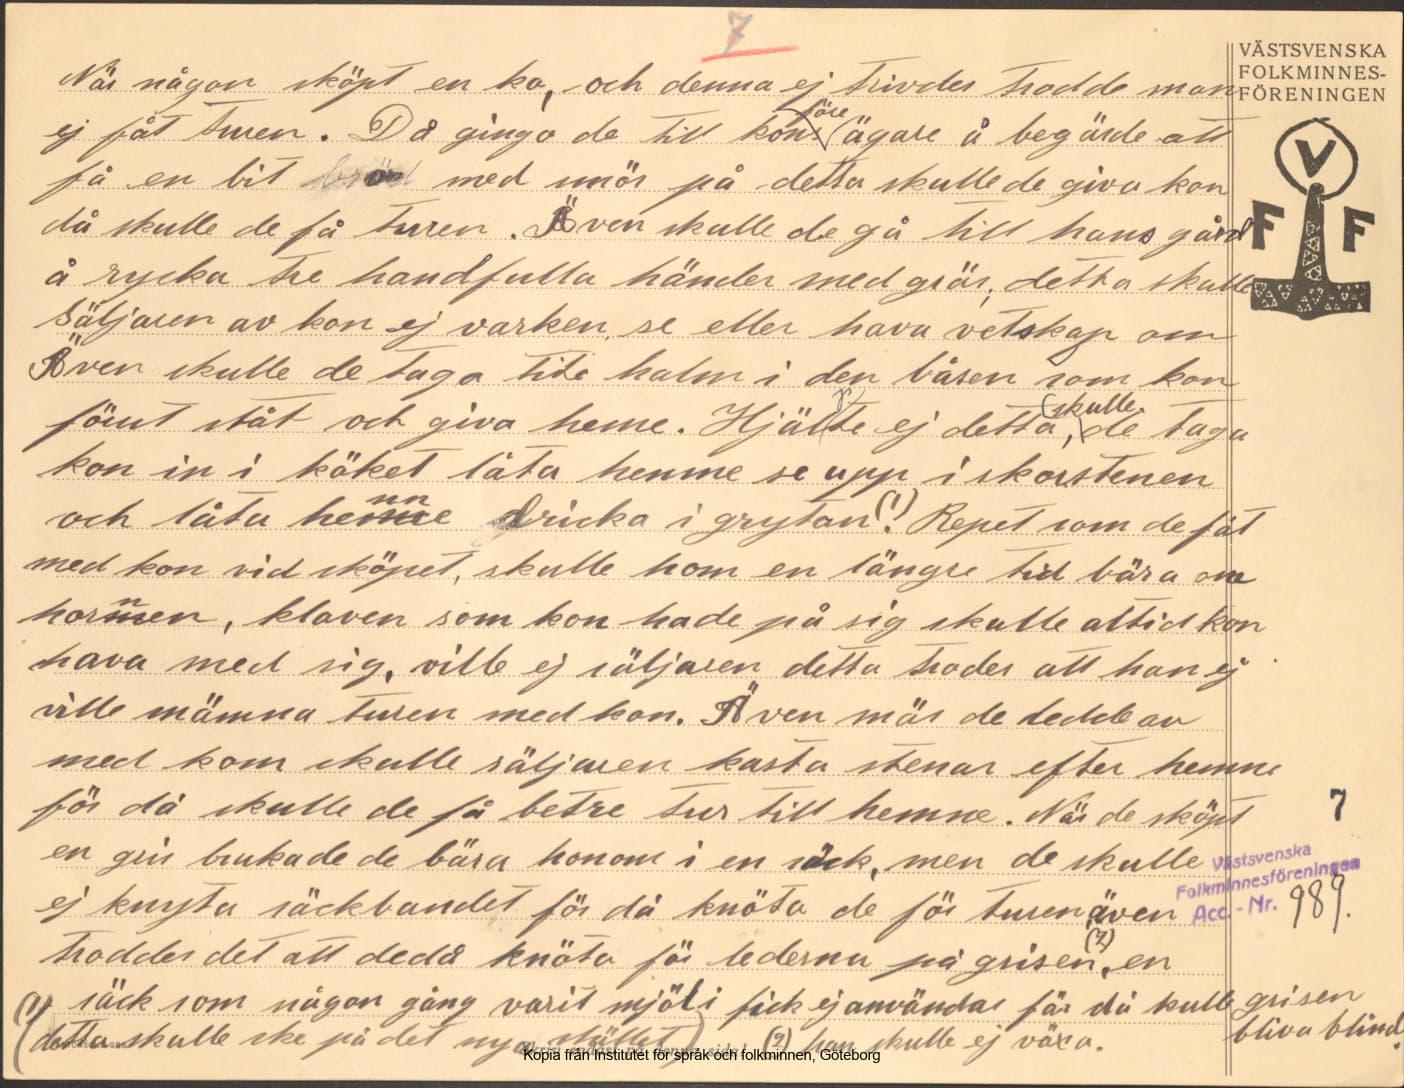 7
VÄSTSVENSKA
FOLKMINNES-
FÖRENINGEN
När någon sköpt en ko, och denna ej trivdes trodde man
ej fåt turen. Då gingo de till kons före ägare å begärde att
få en bit bröd med smör på detta skulle de giva kon
då skulle de få turen. Även skulle de gå till hans gård
å rycka tre handfulla händer med gräs, detta skulle
Säljaren av kon ej varken se eller hava vetskap om
Även skulle de taga lite halm i den båsen som kon
förut ståt och giva henne. Hjälte ej detta, skulle de taga
kon in i köket låta henne se upp i skorstenen
och låta henne dricka i grytan (1)! Repet som de fåt
med kon vid sköpet, skulle hom en längre tid bära om
hornen, klaven som kon hade på sig skulle altid kon
hava med sig, ville ej säljaren detta trodes att han ej
ville mämna turen med kon. Även när de ledde av
med kom skulle säljaren kasta stenar efter hemne
för då skulle de få betre tur till hemne. När de sköpt
en gris brukade de bära honom i en säck, men de skulle
ej knyta säckbandet för då knöto de för turen, även
troddes det att dedå knöto för lederna på grisen (2), en
säck som någon gång varit mjöl i fick ej användas för då kulle grisen
bliva blind.
(1) detta skulle ske på det nya stället) (2) han skulle ej växa.
V F F
7
Västsvenska
Folkminnesföreningen
Acc. - Nr. 989.
Kopia från Institutet för språk och folkminnen, Göteborg